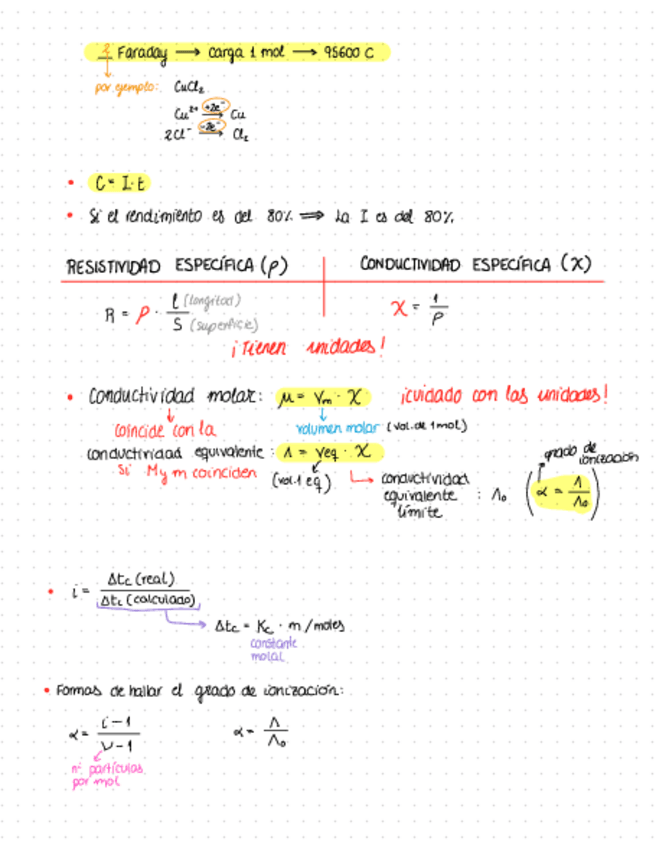 1 Faraday → carga 1 mol → 95600 C
por ejemplo: CuCl₂
Cu²⁺ +2e⁻→ Cu
2Cl⁻ -2e⁻→ Cl₂
• C = I · t
• Si el rendimiento es del 80% ⟹ La I es del 80%
RESISTIVIDAD ESPECÍFICA (ρ)
CONDUCTIVIDAD ESPECÍFICA (χ)
R = ρ · l (longitud) / S (superficie)
χ = 1 / ρ
¡Tienen unidades!
• Conductividad molar: μ = Vm · χ ¡cuidado con las unidades!
coincide con la
volumen molar (vol. de 1mol)
conductividad equivalente: Λ = Veq · χ
si M y m coinciden
(vol. 1 eq)
conductividad equivalente límite : Λ₀
grado de ionización
(α = Λ / Λ₀)
• i = Δtc (real) / Δtc (calculado)
Δtc = Kc · m/moles
constante
molal
• Formas de hallar el grado de ionización:
α = i-1 / ν-1
α = Λ / Λ₀
nº partículas
por mol